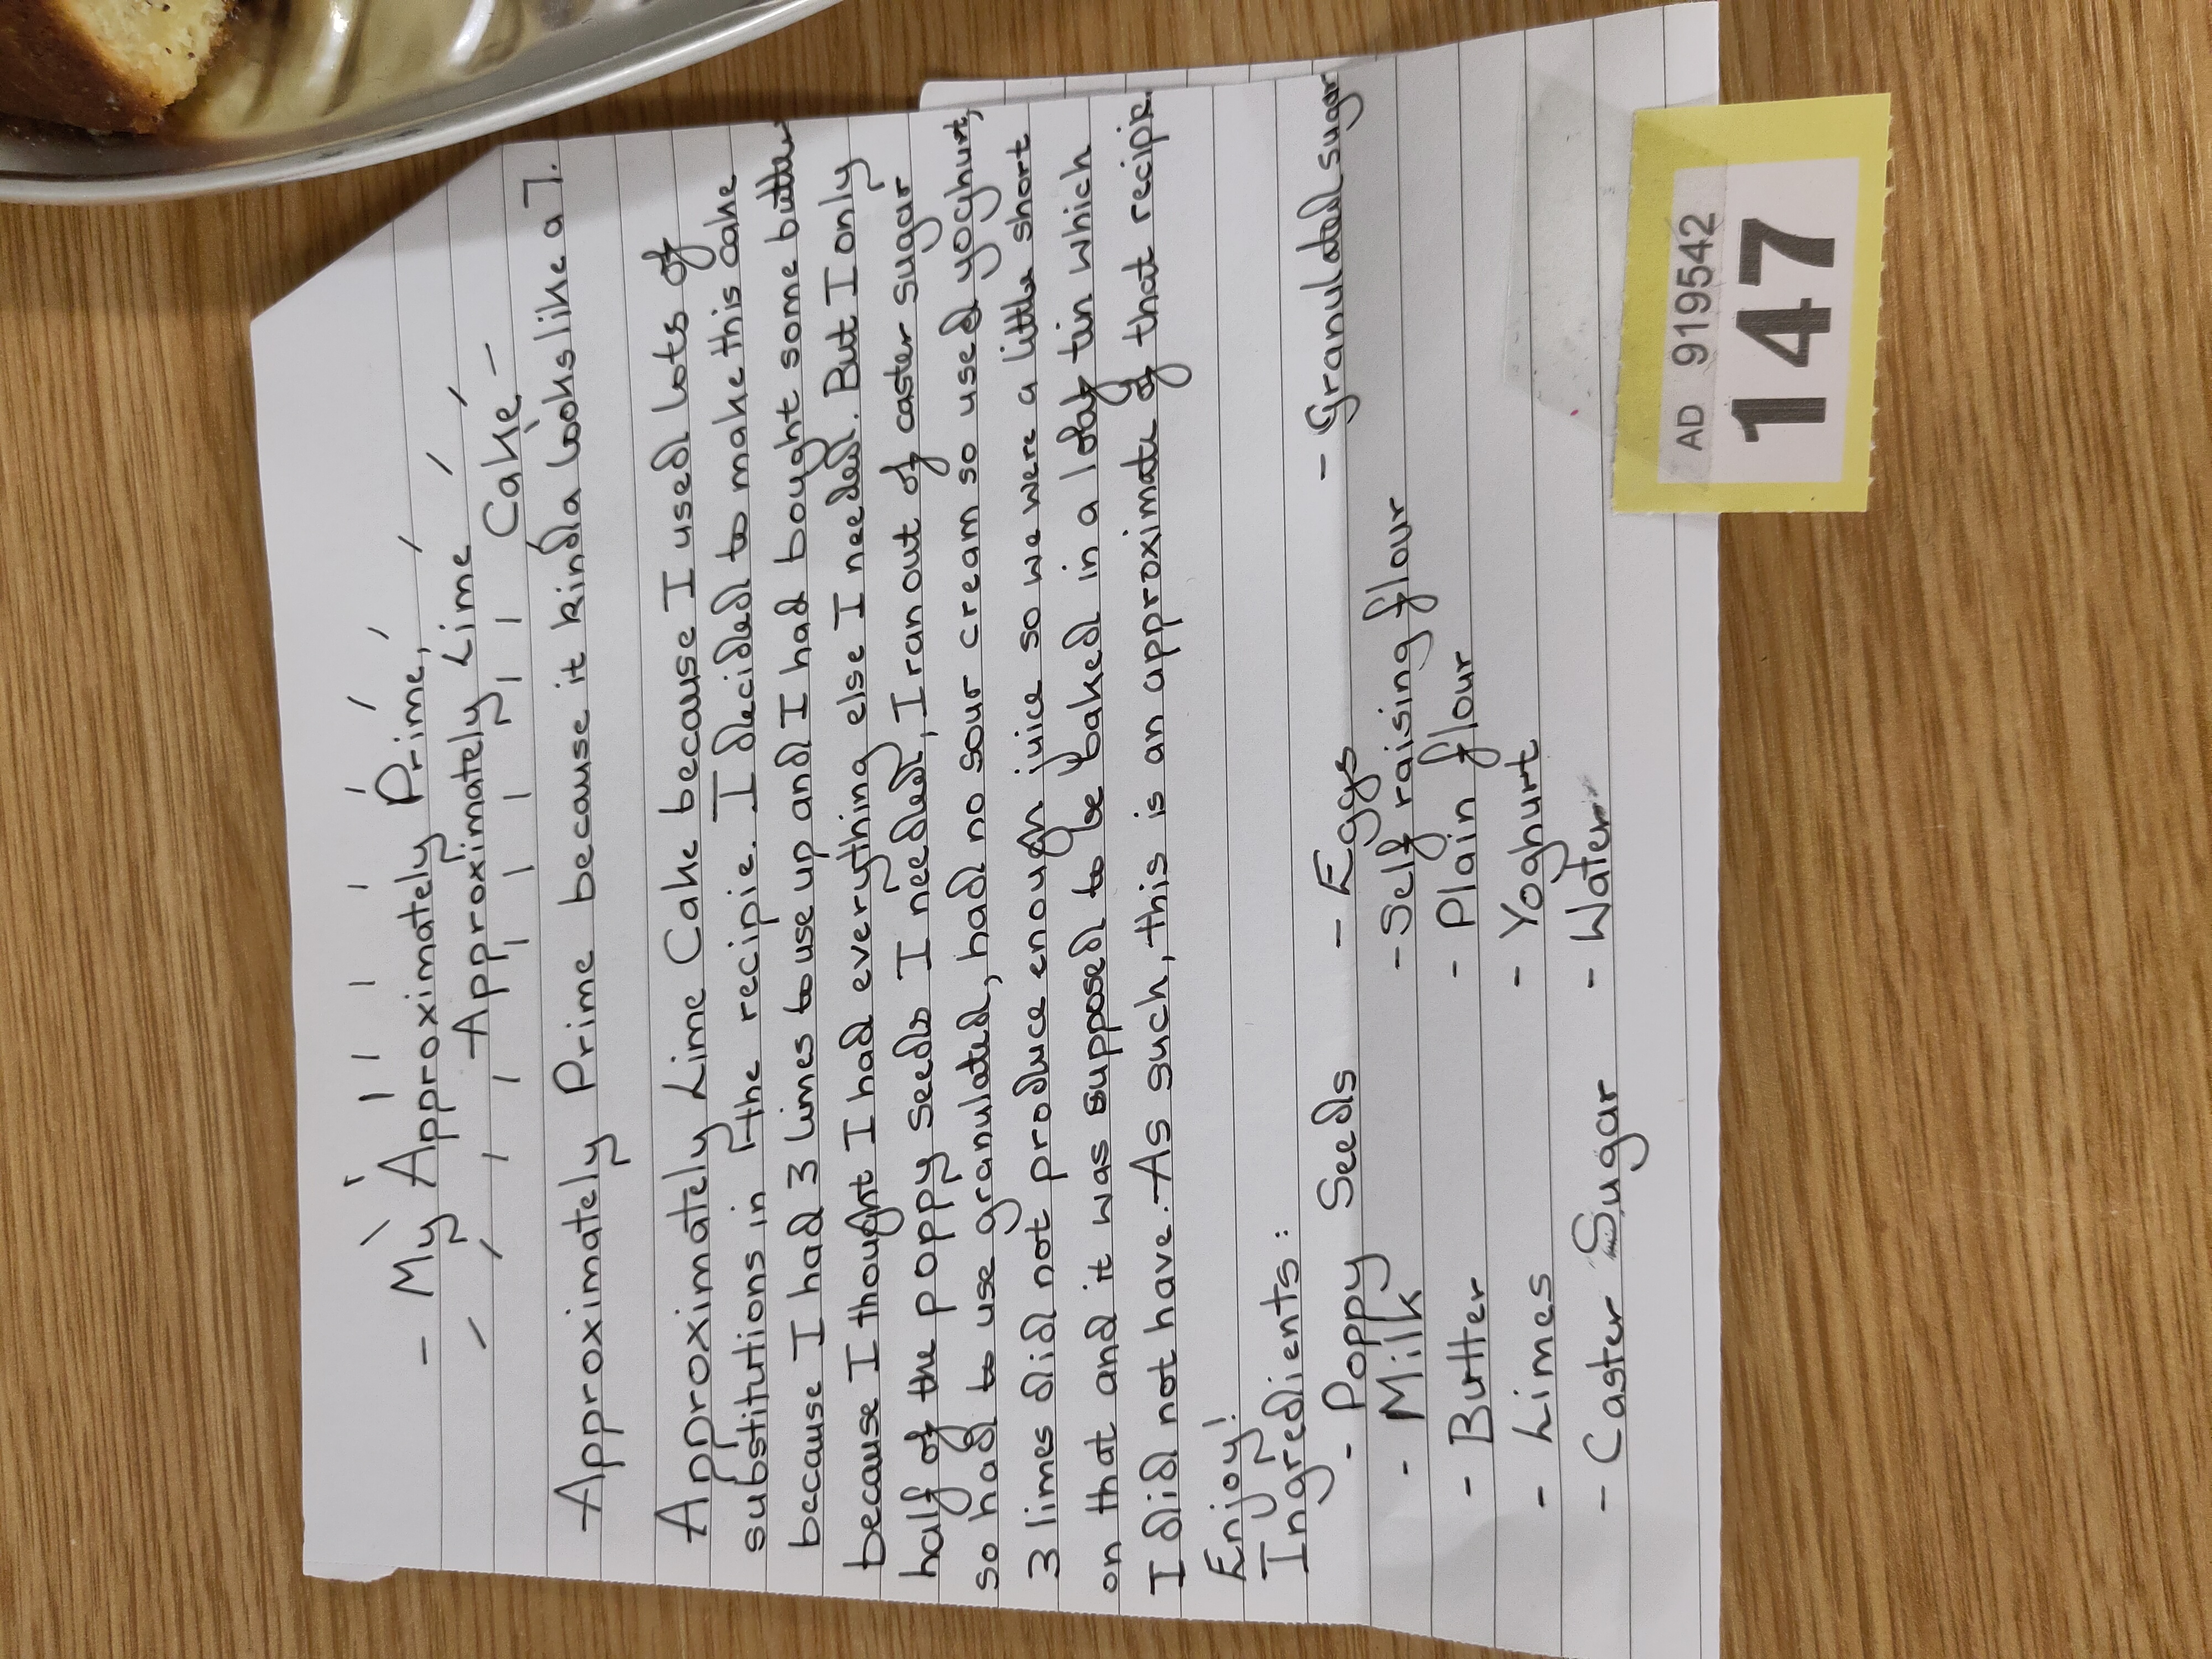 My Approximately Prime,
Approximately Lime
Cake
Approximately Prime because it kinda looks like a 7.
Approximately Lime Cake because I used lots of
substitutions in the recipie. I decided to make this cake
because I had 3 limes to use up and I had bought some butter
because I thought I had everything else I needed. But I only
half of the poppy seeds I needed, I ran out of caster sugar
so had to use granulated, had no sour cream so used yoghurt,
3 limes did not produce enough juice so we were a little short
on that and it was supposed to be baked in a loaf tin which
I did not have. As such, this is an approximate of that recipie.
Enjoy!
Ingredients:
- Poppy Seeds - Eggs - Granulated sugar
- Milk - Self raising flour
- Butter - Plain flour
- Limes - Yoghurt
- Caster Sugar - Water
AD 919542
147